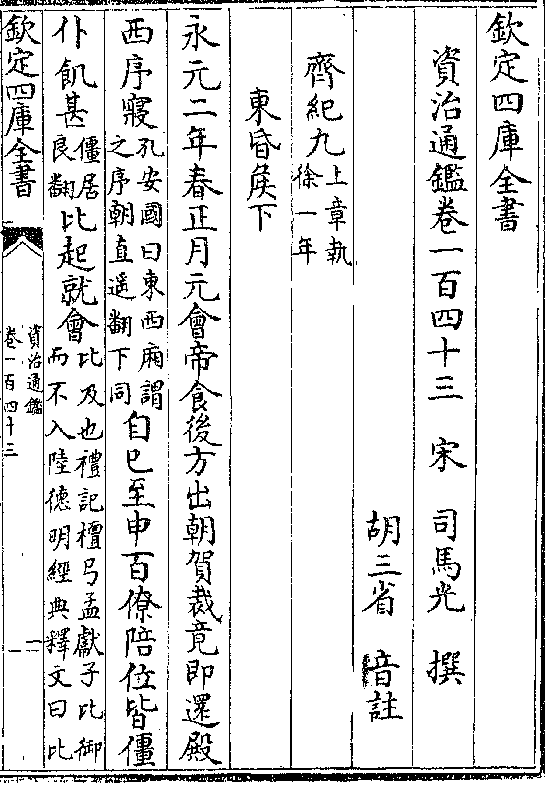 欽定四庫全書
資治通鑑卷一百四十三　宋　司馬光　撰
胡三省　音註
齊紀九上章執徐一年
東昏侯下
永元二年春正月元會帝食後方出朝賀裁竟即還殿
西序寢孔安國曰東西廂謂之序朝直遥翻下同自巳至申百僚陪位皆僵
仆飢甚僵居良翻比起就會比及也禮記檀弓孟獻子比御而不入陸德明經典釋文曰比
欽定四庫全書
資治通鑑
卷一百四十三
一